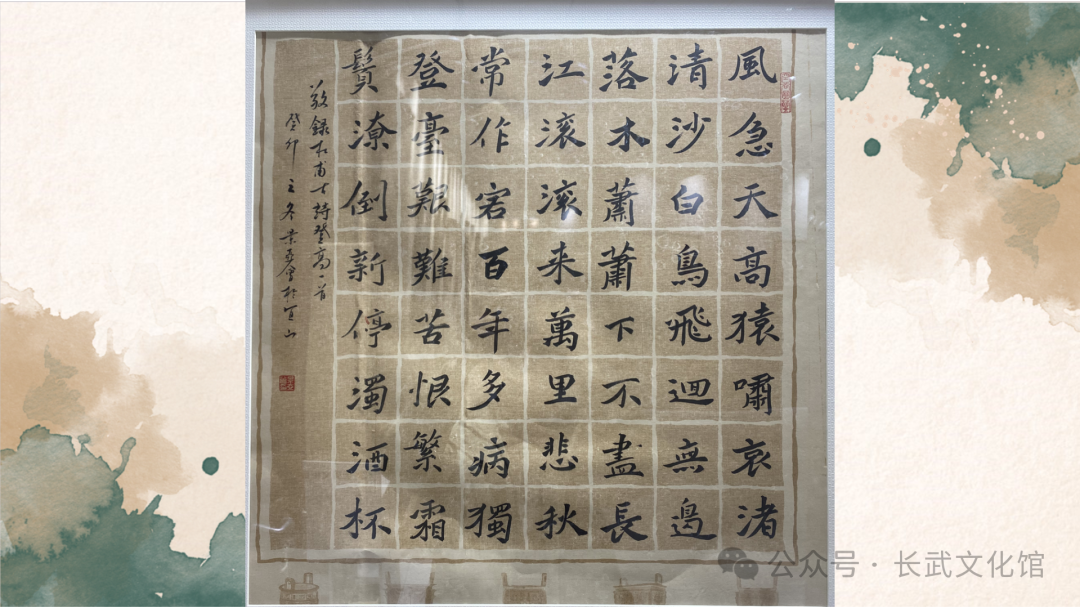 風急天高猿嘯哀渚
清沙白鳥飛迴無邊
落木蕭蕭下不盡長
江滚滚来萬里悲秋
常作客百年多病獨
登臺艱難苦恨繁霜
鬢潦倒新停濁酒杯
敬録杜甫七詩登高一首
癸卯之冬
公众号·长武文化馆